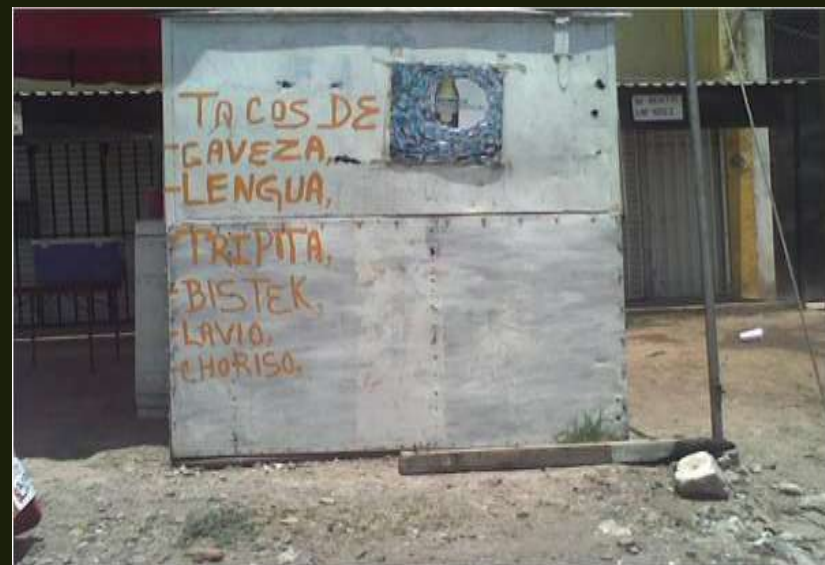 TACOS DE
-CAVEZA,
-LENGUA,
-TRIPITA,
-BISTEK,
-LAVIO,
-CHORISO,